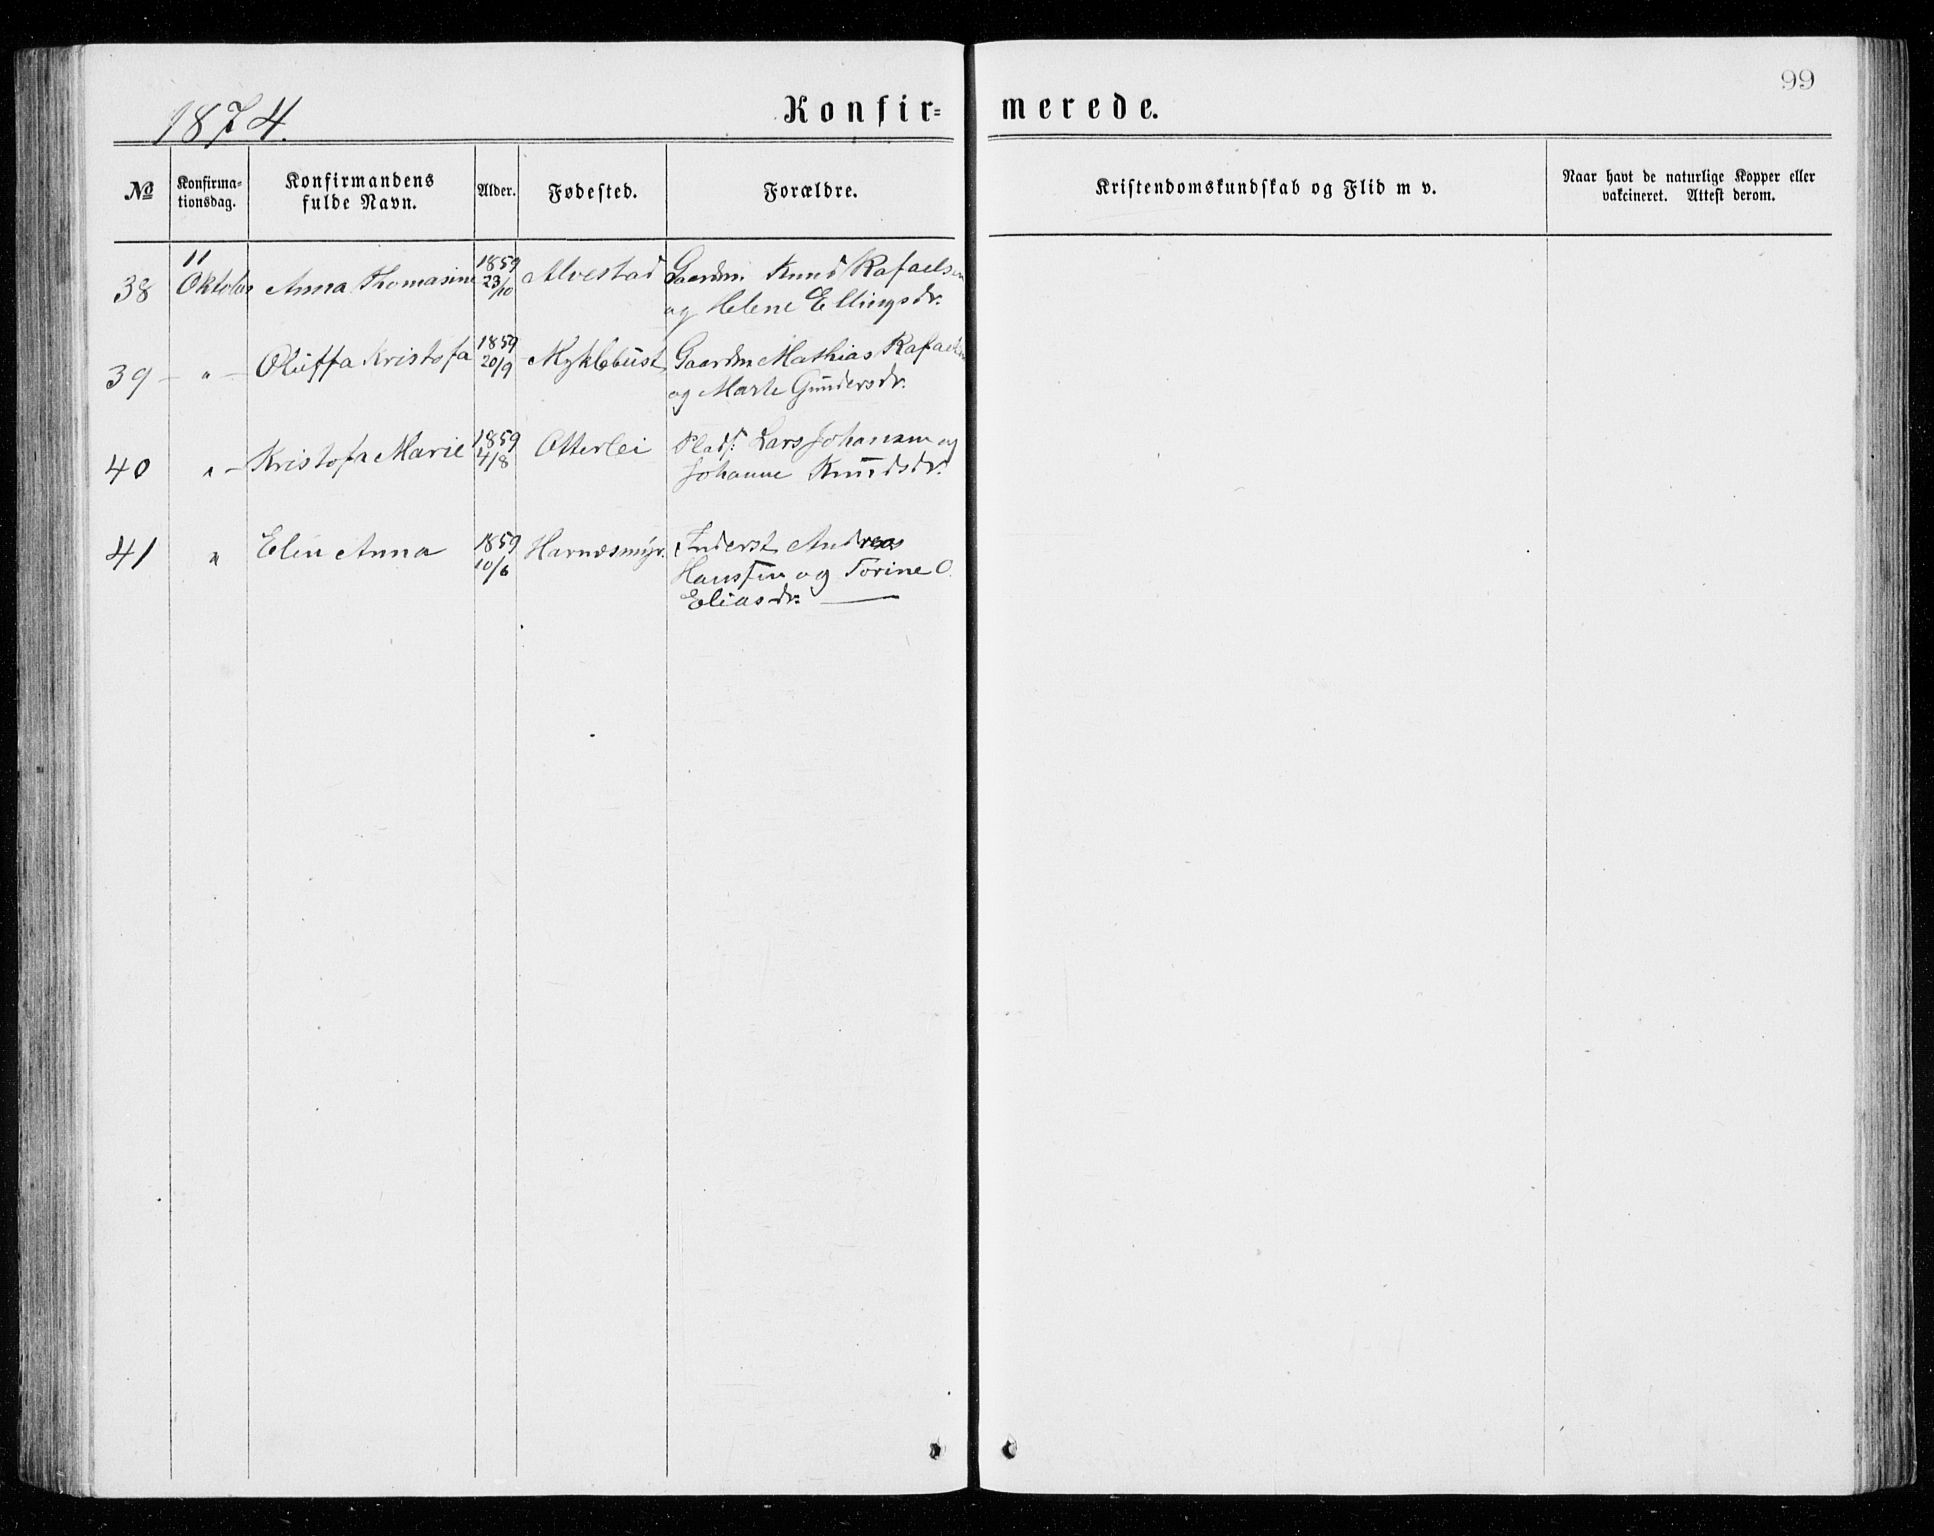 99
1874.
Konfir=
merede.
№
Konfirma=
tionsdag.
Konfirmandens
fulde Navn.
Alder.
Fødested.
Forældre.
Kristendomskundskab og Flid m v.
Naar havt de naturlige Kopper eller
vakcineret. Attest derom.
38
11
Oktober
Anna Thomasine
1859
23/10
Alvestad
Gaardm. Knud Rafaelsen
og Helene Ellingsdr.
39 — " —
Oluffa Kristofa
1859
20/9
Myklebust
Gaardm Mathias Rafaelsen
og Marte Gundersdr.
40 " —
Kristofa Marie
1859
4/8
Otterlei
Plads. Lars Johansen og
Johanne Knudsdr.
41 "
Elen Anna
1859
10/6
Harnæsmyr.
Inderst Andreas
Hansen og Torine O.
Eliasdr. —